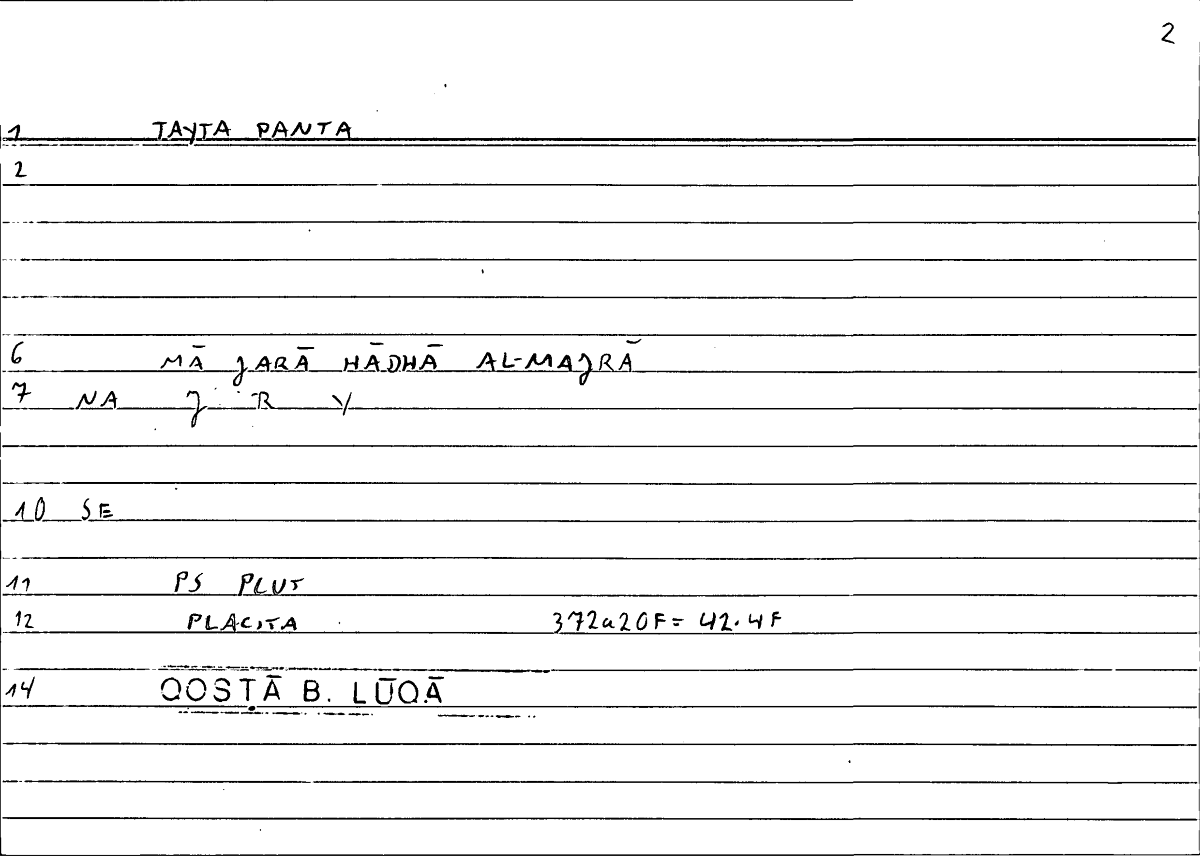 2
1 TAYTA PANTA
2
6 MĀ JARĀ HĀDHĀ AL-MAJRĀ
7 NA J R Y
10 SE
11 PS PLUT
12 PLACITA 372a20F= 42.4F
14 QOSṬĀ B. LŪQĀ